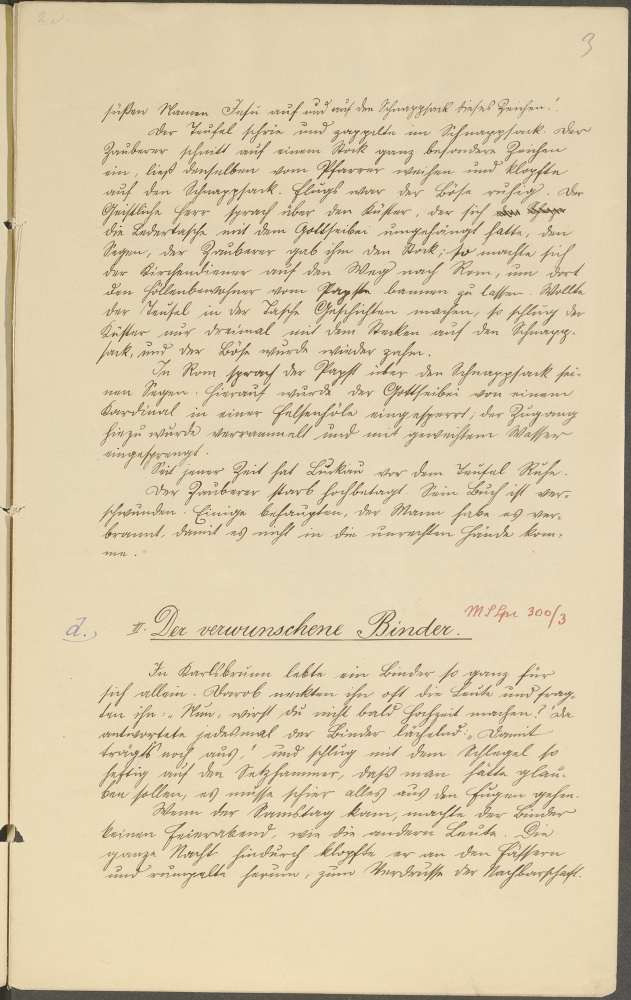 3
süßen Namen Jesu auf und auf den Schnappsack dieses Zeichen!
Der Teufel schrie und zappelte im Schnappsack. Der
Zauberer schnitt auf einem Stock ganz besondere Zeichen
ein, ließ denselben vom Pfarrer weihen und klopfte
auf den Schnappsack. Flugs war der Böse ruhig. Der
Geistliche Herr sprach über den Küster, der sich
die Ledertasche mit dem Gottseibei umgehängt hatte, den
Segen, der Zauberer gab ihm den Stock; so machte sich
der Kirchendiener auf den Weg nach Rom, um dort
den Höllenbewohner vom Papste bannen zu lassen. Wollte
der Teufel in der Tasche Geschichten machen, so schlug der
Küster nur dreimal mit dem Stecken auf den Schnapp-
sack, und der Böse wurde wieder zahm.
In Rom sprach der Papst über den Schnappsack sei-
nen Segen. Hierauf wurde der Gottseibei von einem
Kardinal in einer Felsenhöle eingesperrt; der Zugang
hiezu wurde verrammelt und mit geweihtem Wasser
eingesprengt.
Seit jener Zeit hat Luckau vor dem Teufel Ruhe.
Der Zauberer starb hochbetagt. Sein Buch ist ver-
schwunden. Einige behaupten, der Mann habe es ver-
brannt, damit es nicht in die unrechten Hände kom-
me.
MSLpr 300/3
d., II. Der verwunschene Binder.
In Karlsbrunn lebte ein Binder so ganz für
sich allein. Darob neckten ihn oft die Leute und frag-
ten ihn: „Nun, wirst du nicht bald Hochzeit machen? Da
antwortete jedesmal der Binder lächelnd: „Damit
trägts noch aus!" und schlug mit dem Schlegel so
heftig auf den Setzhammer, daß man hätte glau-
ben sollen, es müsse schier alles aus den Fugen gehen.
Wenn der Samstag kam, machte der Binder
keinen Feierabend, wie die andern Leute. Die
ganze Nacht hindurch klopfte er an den Fässern
und rumpelte herum, zum Verdrusse der Nachbarschaft.